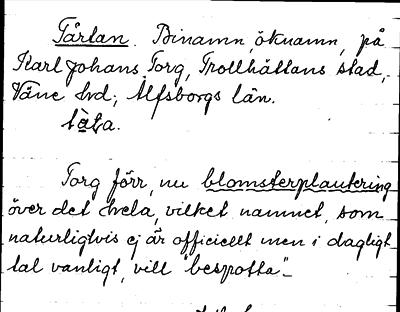 Tårtan. Binamn, öknamn, på
Karl Johans Torg, Trollhättans stad,
Väne hd; Älfsborgs län.
Torg förr, nu blomsterplantering
över det hela, vilket namnet, som
naturligtvis ej är officiellt men i dagligt
tal vanligt, vill "bespotta".